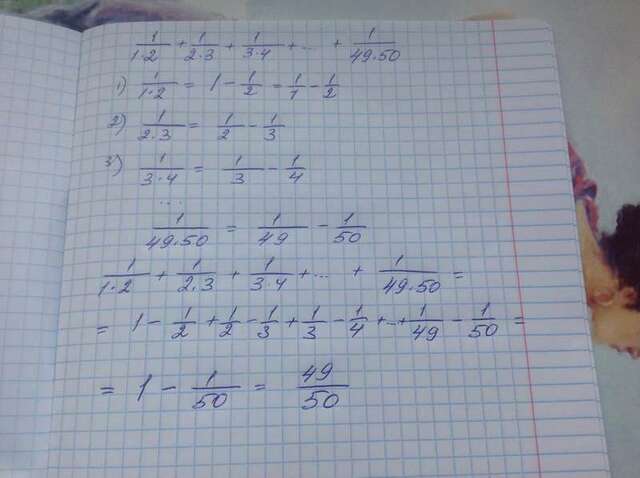 1/1·2 + 1/2·3 + 1/3·4 + ... + 1/49·50
1) 1/1·2 = 1 - 1/2 = 1/1 - 1/2
2) 1/2·3 = 1/2 - 1/3
3) 1/3·4 = 1/3 - 1/4
...
1/49·50 = 1/49 - 1/50
1/1·2 + 1/2·3 + 1/3·4 + ... + 1/49·50 =
= 1 - 1/2 + 1/2 - 1/3 + 1/3 - 1/4 + ... + 1/49 - 1/50 =
= 1 - 1/50 = 49/50